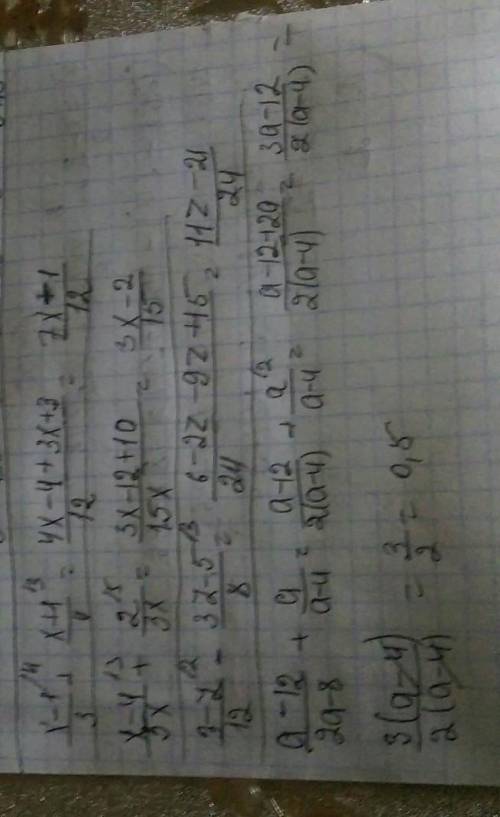 x-1/3 + x+1/4 = 4x-4+3x+3/12 = 7x-1/12
x-4/5x + 2/3x = 3x-12+10/15x = 3x-2/15
3-z/12 - 3z-5/8 = 6-2z-9z+15/24 = 11z-21/24
a-12/2a-8 + a/a-4 = a-12/2(a-4) + a/a-4 = a-12+2a/2(a-4) = 3a-12/2(a-4) =
3(a-4)/2(a-4) = 3/2 = 0,5